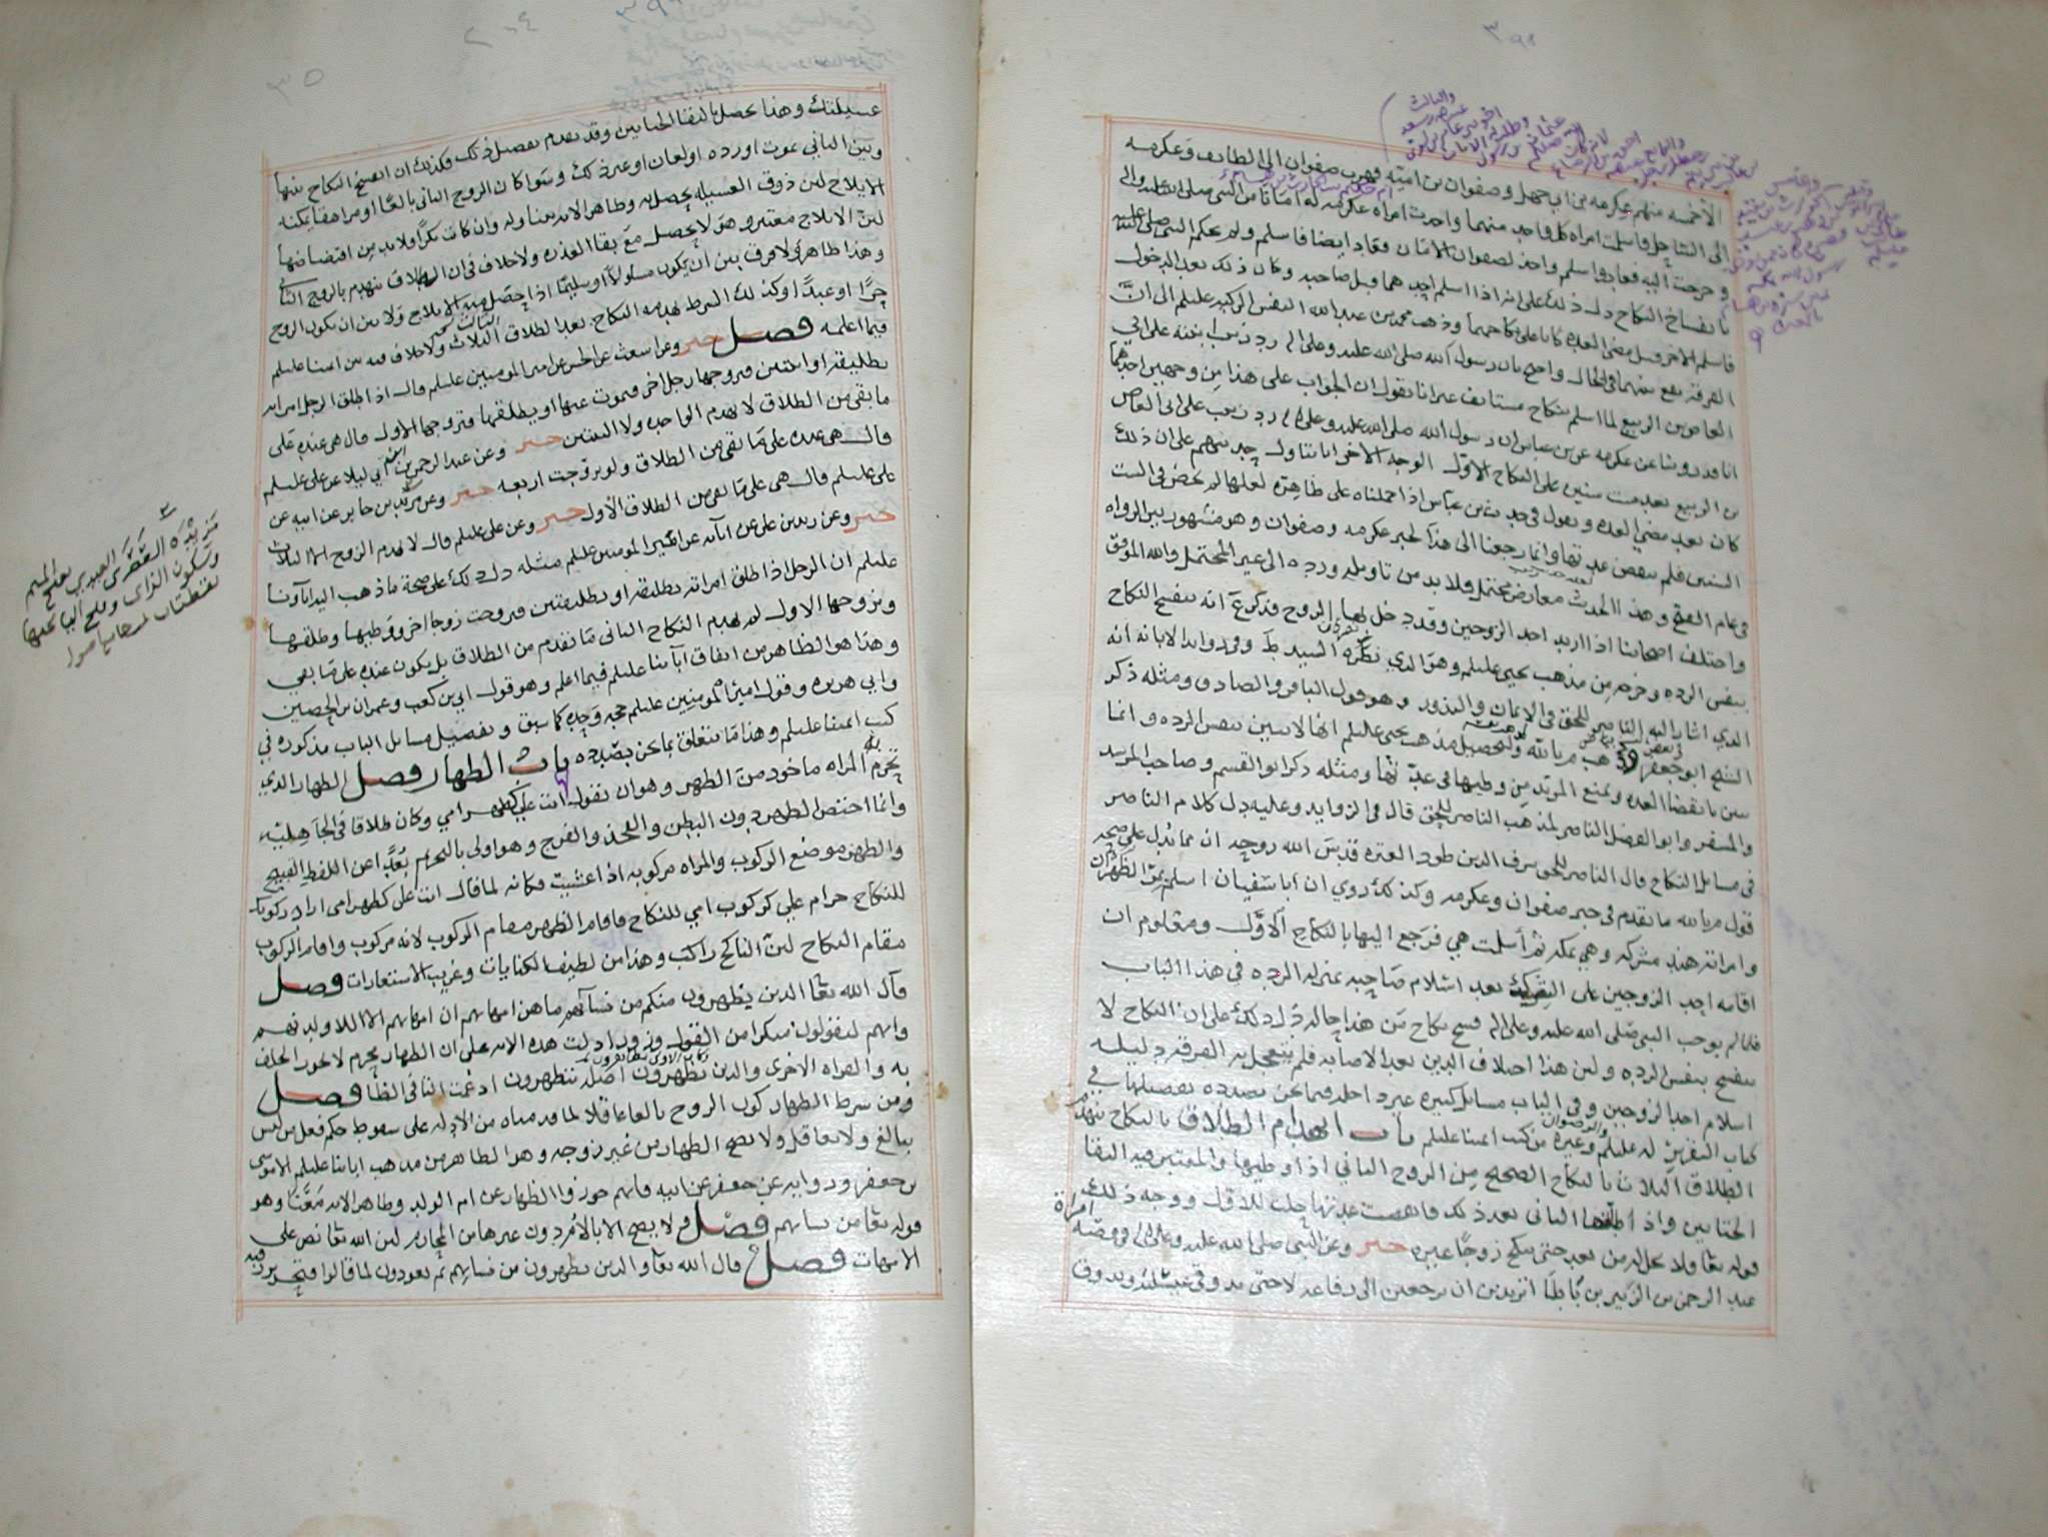 الا خمسة منهم عكرمه بن ابي جهل وصفوان بن اميه فهرب صفوان الى الطائف وعكرمه
الى الساحل فاسلمت امراه كل واحد منهما واخذت امراه عكرمه له امانا من النبي صلى الله عليه واله
وخرجت اليه فعاد واسلم واخذ لصفوان الامان فعاد ايضا فاسلم ولم يحكم النبي صلى الله عليه
بانفساخ النكاح دل ذلك على انه اذا اسلم احدهما قبل صاحبه وكان ذلك بعد الدخول
فاسلم الاخر قبل مضي العده كانا على نكاحهما وذهب محمد بن عبد الله النفس الزكيه عليلم الى ان
الفرقه تقع بينهما في الحال واحتج بان رسول الله صلى الله عليه وعلى اله رد زينب ابنته على ابي
العاص بن الربيع لما اسلم بنكاح مستانف غير انا نقول ان الجواب على هذا من وجهين احدهما
انا قد روينا عن عكرمه عن بن عباس ان رسول الله صلى الله عليه وعلى اله رد زينب على ابي العاص
بن الربيع بعد ست سنين على النكاح الاول الوجه الاخر انا نتاول حديثهم على ان ذلك
كان بعد مضي العده ونقول في حديث بن عباس اذا حملناه على ظاهره لعلها لم تحض في الست
السنين فلم تنقض عدتها وانما رجعنا الى هذا لخبر عكرمه وصفوان وهو مشهور بين الرواه
في عام الفتح وهذا الحديث معارض محتمل فلا بد من تاويله ورده الى غير المحتمل والله الموفق
واختلف اصحابنا اذا ارتد احد الزوجين وقد دخل بها الزوج فذكر ع انه ينفسخ النكاح
بنفس الرده وخرجه من مذهب يحيى عليلم وهو الذي ذكره السيد ط وفي زوايد الابانه انه
الذي اشار اليه الناصر للحق في الايمان والنذور وهو قول الباقر والصادق ومثله ذكر
الشيخ ابو جعفر وذهب م بالله والتحصيل مذهب يحيى عليلم انها لا تبين بنفس الرده وانما
تبين بانقضا العده ويمنع المرتد من وطيها في عدتها ومثله ذكر ابو القسم وصاحب المرشد
والمسفر وابو الفضل الناصر لمذهب الناصر للحق قال في الزوايد وعليه دل كلام الناصر
في مسائل النكاح قال الناصر للحق شرف الدين طود العتره قدس الله روحه ان مما يدل على صحه
قول م بالله ما تقدم في خبر صفوان وعكرمه وكذلك روي ان ابا سفيان اسلم بمر الظهران
وامراته هند مشركه وهي بمكه ثم أسلمت هي فرجع اليها بالنكاح الاول ومعلوم ان
اقامه احد الزوجين على الشرك بعد اسلام صاحبه بمنزله الرده في هذا الباب
فلما لم يوجب النبي صلى الله عليه وعلى اله فسخ نكاح من هذا حاله دل ذلك على ان النكاح لا
ينفسخ بنفس الرده ولان هذا اختلاف الدين بعد الاصابه فلم يتعجل به الفرقه دليله
اسلام احد الزوجين وفي الباب مسائل كثيره غير داخله فيما نحن بصدده تفصيلها في
كتاب التقرير له عليلم وغيره من كتب ائمتنا عليلم باب انهدام الطلاق بالنكاح ينهدم
الطلاق الثلاث بالنكاح الصحيح من الزوج الثاني اذا وطيها والمعتبر فيه التقا
الختانين واذا طلقها الثاني بعد ذلك فانقضت عدتها حلت للاول ووجه ذلك
قوله تعا ولا تحل له من بعد حتى تنكح زوجًا غيره خبر وعن النبي صلى الله عليه وعلى اله في قصه امراة
عبد الرحمن بن الزبير بن باطا اتريدين ان ترجعين الى رفاعه لا حتى تذوقي عسيلته ويذوق
عسيلتك وهذا يحصل بالتقا الختانين وقد تقدم تفصيل ذلك فكذلك ان انفسخ النكاح بينها
وبين الثاني بموت او رده او لعان او غير ذلك وسوا كان الزوج الثاني بالغًا او مراهقا يمكنه
الايلاج لان ذوق العسيله يحصل به وظاهر الايه يتناوله وان كانت بكرًا فلا بد من افتضاضها
لان الايلاج معتبر وهو لا يحصل مع بقا العذره ولا خلاف في ان الطلاق ينهدم بالزوج الثاني
وهذا ظاهر ولا فرق بين ان يكون مسلولًا او سليمًا اذا حصل منه الايلاج ولا بين ان يكون الزوج
حرًا او عبدًا وكذلك الشرط يهدمه النكاح بعد الطلاق الثلاث ولا خلاف فيه بين ائمتنا عليلم
فيما اعلمه فصل خبر وعن اشعث عن الحسن عن امير المومنين عليلم قال اذا طلق الرجل امراته
تطليقه او اثنتين فتزوجها رجل اخر فيموت عنها او يطلقها فتزوجها الاول قال هي عنده على
ما بقي من الطلاق لا يهدم الواحده ولا الثنتين خبر وعن عبد الرحمن بن ابي ليلا عن علي عليلم
قال هي عنده على ما بقي من الطلاق ولو تزوجت اربعه خبر وعن مزيده بن جابر عن ابيه عن
علي عليلم قال هي على ما بقي من الطلاق الأول خبر وعن علي عليلم قال لا يهدم الزوج الا الثلاث
خبر وعن زيد بن علي عن آبائه عن امير المومنين عليلم مثله دل ذلك على صحة ما ذهب اليه آباؤنا
عليلم ان الرجل اذا طلق امراته تطليقه او تطليقتين فتزوجت زوجا اخر ووطيها وطلقها
وتزوجها الاول لم يهدم النكاح الثاني ما تقدم من الطلاق بل يكون عنده على ما بقي
وهذا هو الظاهر من اتفاق آبائنا عليلم فيما اعلم وهو قول ابي بن كعب وعمران بن الحصين
وابي هريره وقول امير المومنين عليلم حجه وحده كما سبق وتفصيل مسائل الباب مذكوره في
كتب ائمتنا عليلم وهذا ما يتعلق بما نحن بصدده باب الظهار فصل الظهار الذي
تحرم به المراه ماخوذ من الظهر وهو ان تقول انت علي كظهر امي وكان طلاقا في الجاهليه
وانما اختص الظهر دون البطن والفخذ والفرج وهو اولى بالتحرم بُعدًا عن اللفظ القبيح
والظهر موضع الركوب والمراه مركوبه اذا غشيت فكانه لما قال انت علي كظهر امي اراد ركوبك
للنكاح حرام علي كركوب امي للنكاح فاقام الظهر مقام الركوب لانه مركوب واقام الركوب
مقام النكاح لان الناكح راكب وهذا من لطيف الكنايات وغريب الاستعارات فصل
قال الله تعا الذين يظهرون منكم من نسائهم ما هن امهاتهم ان امهاتهم الا اللا ولدنهم
وانهم ليقولون منكرا من القول وزورا دلت هذه الايه على ان الظهار يحرم لا يجوز الحلف
به والقراه الاخرى والذين يظهرون اصله يتظهرون ادغمت التا في الظا فصل
ومن شرط الظهار كون الزوج بالغا عاقلا لما قدمناه من الادله على سقوط حكم فعل من ليس
ببالغ ولا بعاقل ولا يصح الظهار من غير زوجه وهو الظاهر من مذهب ابائنا عليلم الا موسى
بن جعفر وروايه عن جعفر عن ابيه فانهم جوزوا الظهار عن ام الولد وظاهر الايه معنا وهو
قوله تعا من نسائهم فصل ولا يصح الا بالام دون غيرها من المحارم لان الله تعا نص على
الامهات فصل قال الله تعآ والذين يظهرون من نسائهم ثم يعودون لما قالوا فتحرير رقبه